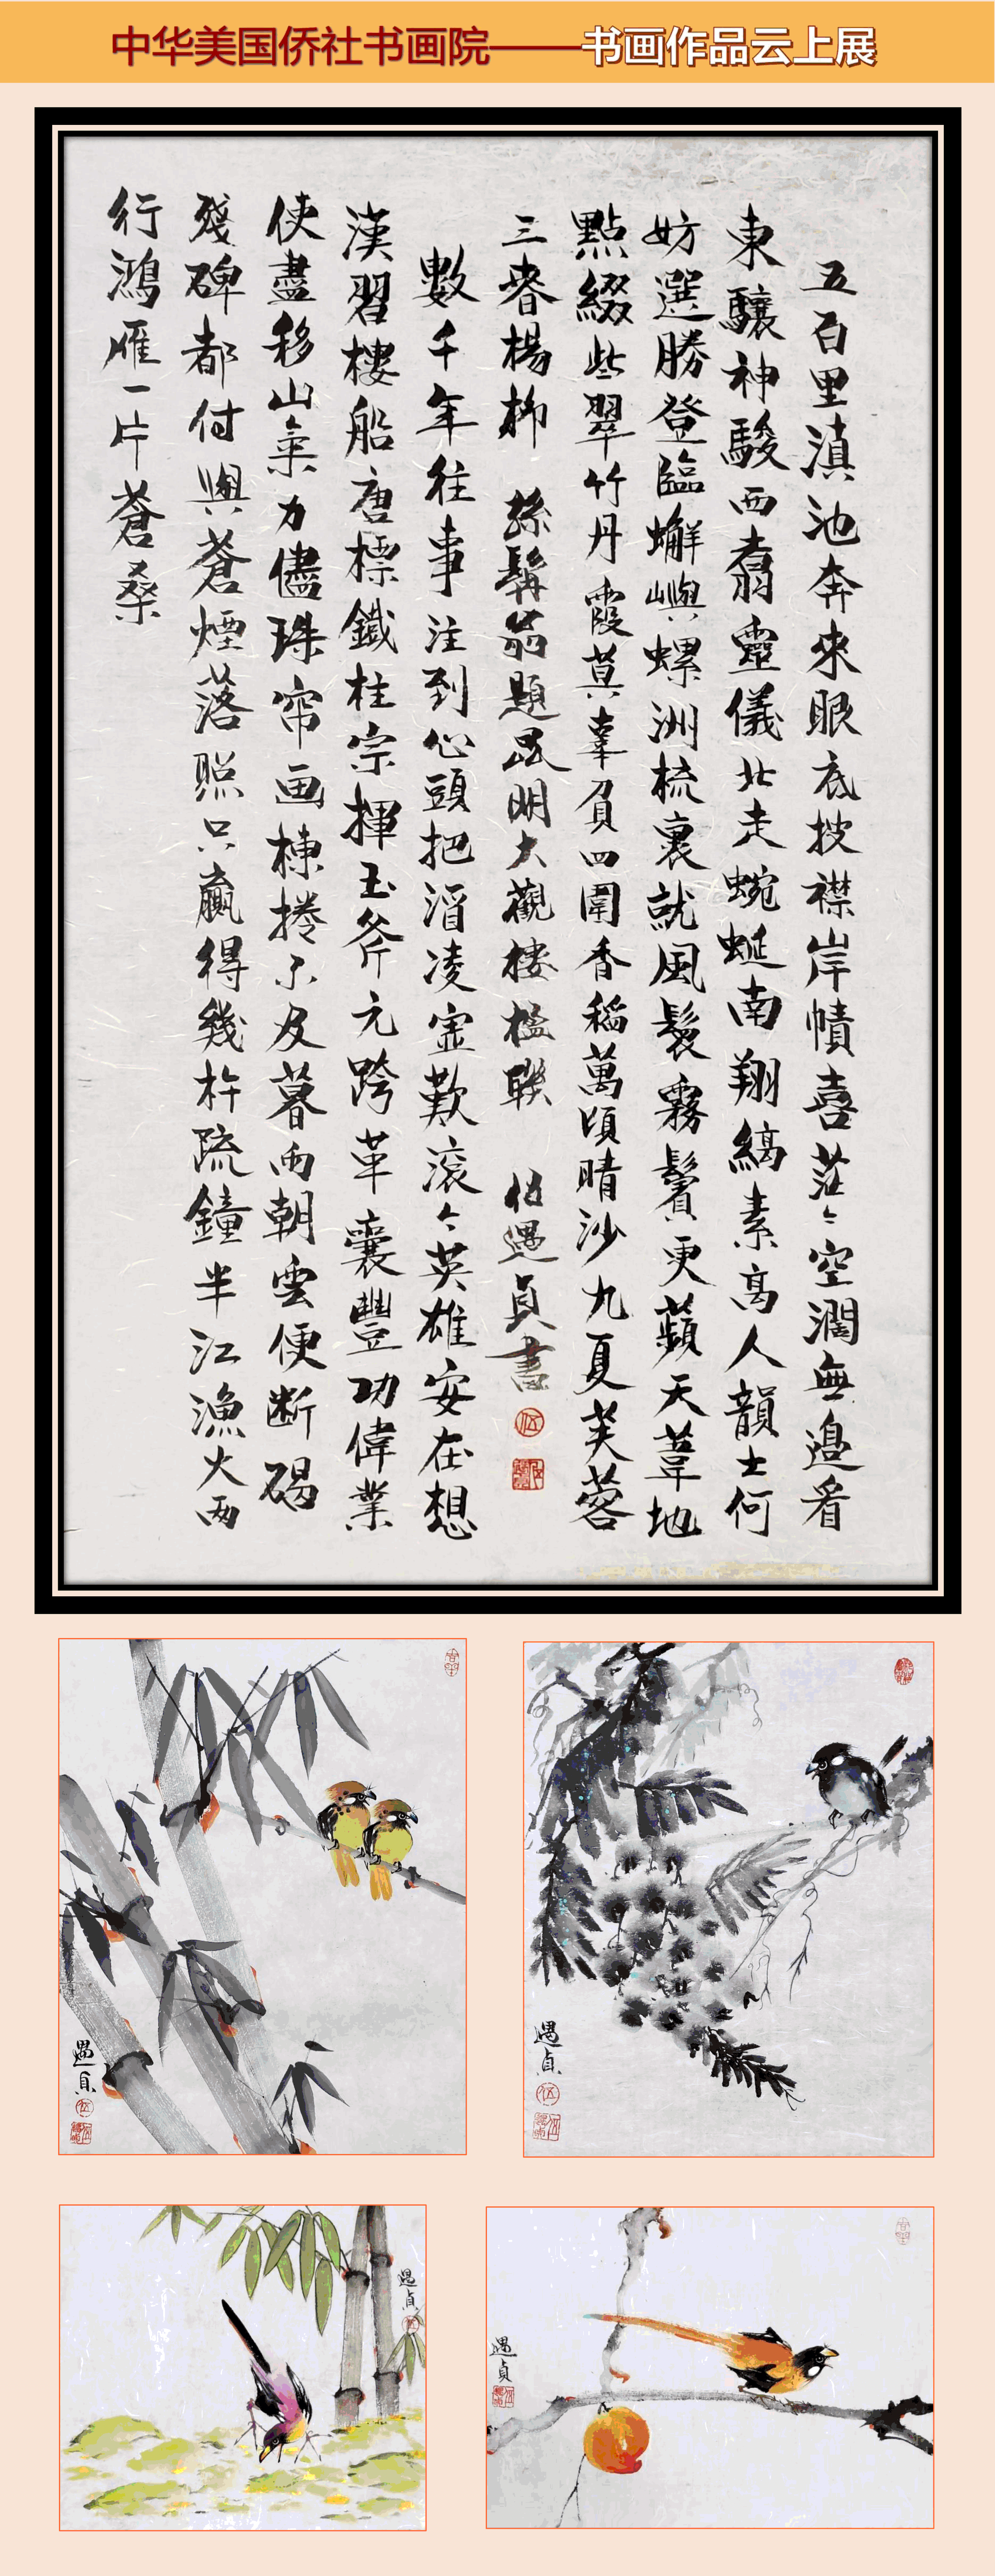 中华美国侨社书画院——书画作品云上展
五百里滇池奔來眼底披襟岸幘喜茫々空濶無邉看
東驤神駿西翥靈儀北走蜿蜒南翔縞素高人韻士何
妨選勝登臨蠏嶼螺洲梳裹就風鬟霧鬢更蘋天葦地
點綴些翠竹丹霞莫辜負四圍香稻萬頃晴沙九夏芙蓉
三春楊柳 孫髯翁題昆明大觀樓楹聯 伍遇貞書
數千年往事注到心頭把酒凌虛歎滚々英雄安在想
漢習樓船唐標鐵柱宗揮玉斧元跨革囊豐功偉業
使盡移山氣力儘珠帘画棟捲不及暮雨朝雲便断碣
殘碑都付與蒼煙落照只贏得幾杵疏鐘半江漁火两
行鴻雁一片蒼桑
遇貞
遇貞
遇貞
遇貞